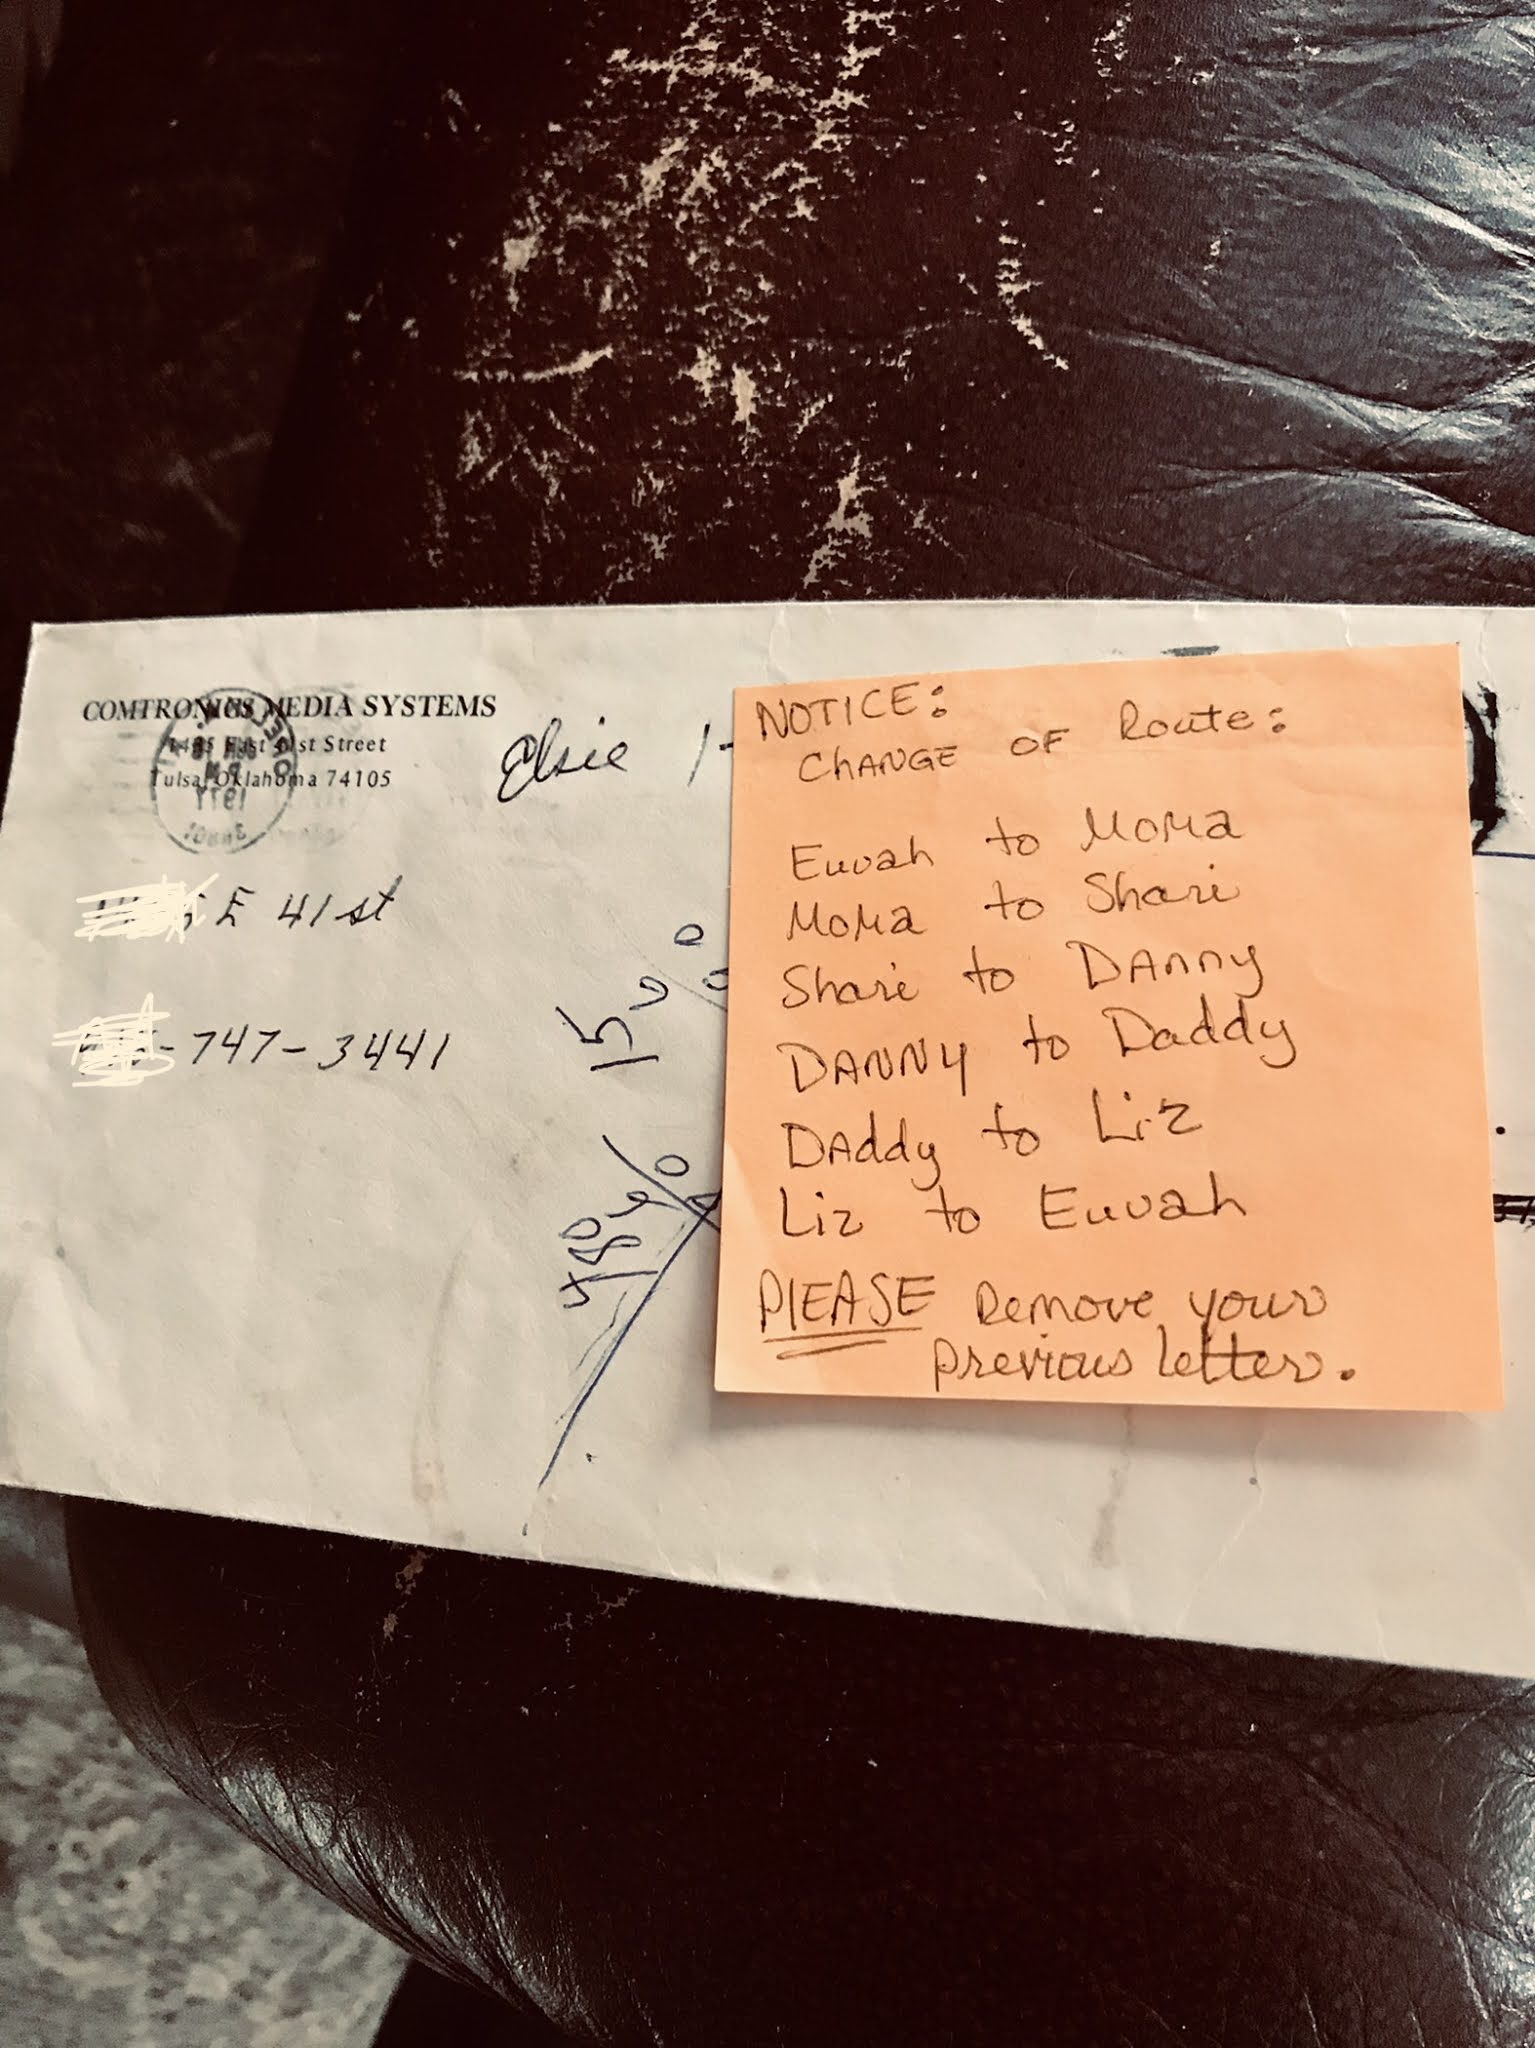 COMTRONICS MEDIA SYSTEMS
East 41st Street
Tulsa, Oklahoma 74105
Elsie
E 41st
-747-3441
15
NOTICE:
CHANGE OF Route:
Euvah to MoMa
MoMa to Shari
Shari to DAnny
DANNY to Daddy
DAddy to Liz
Liz to Euvah
PlEASE Remove your
previous letter.